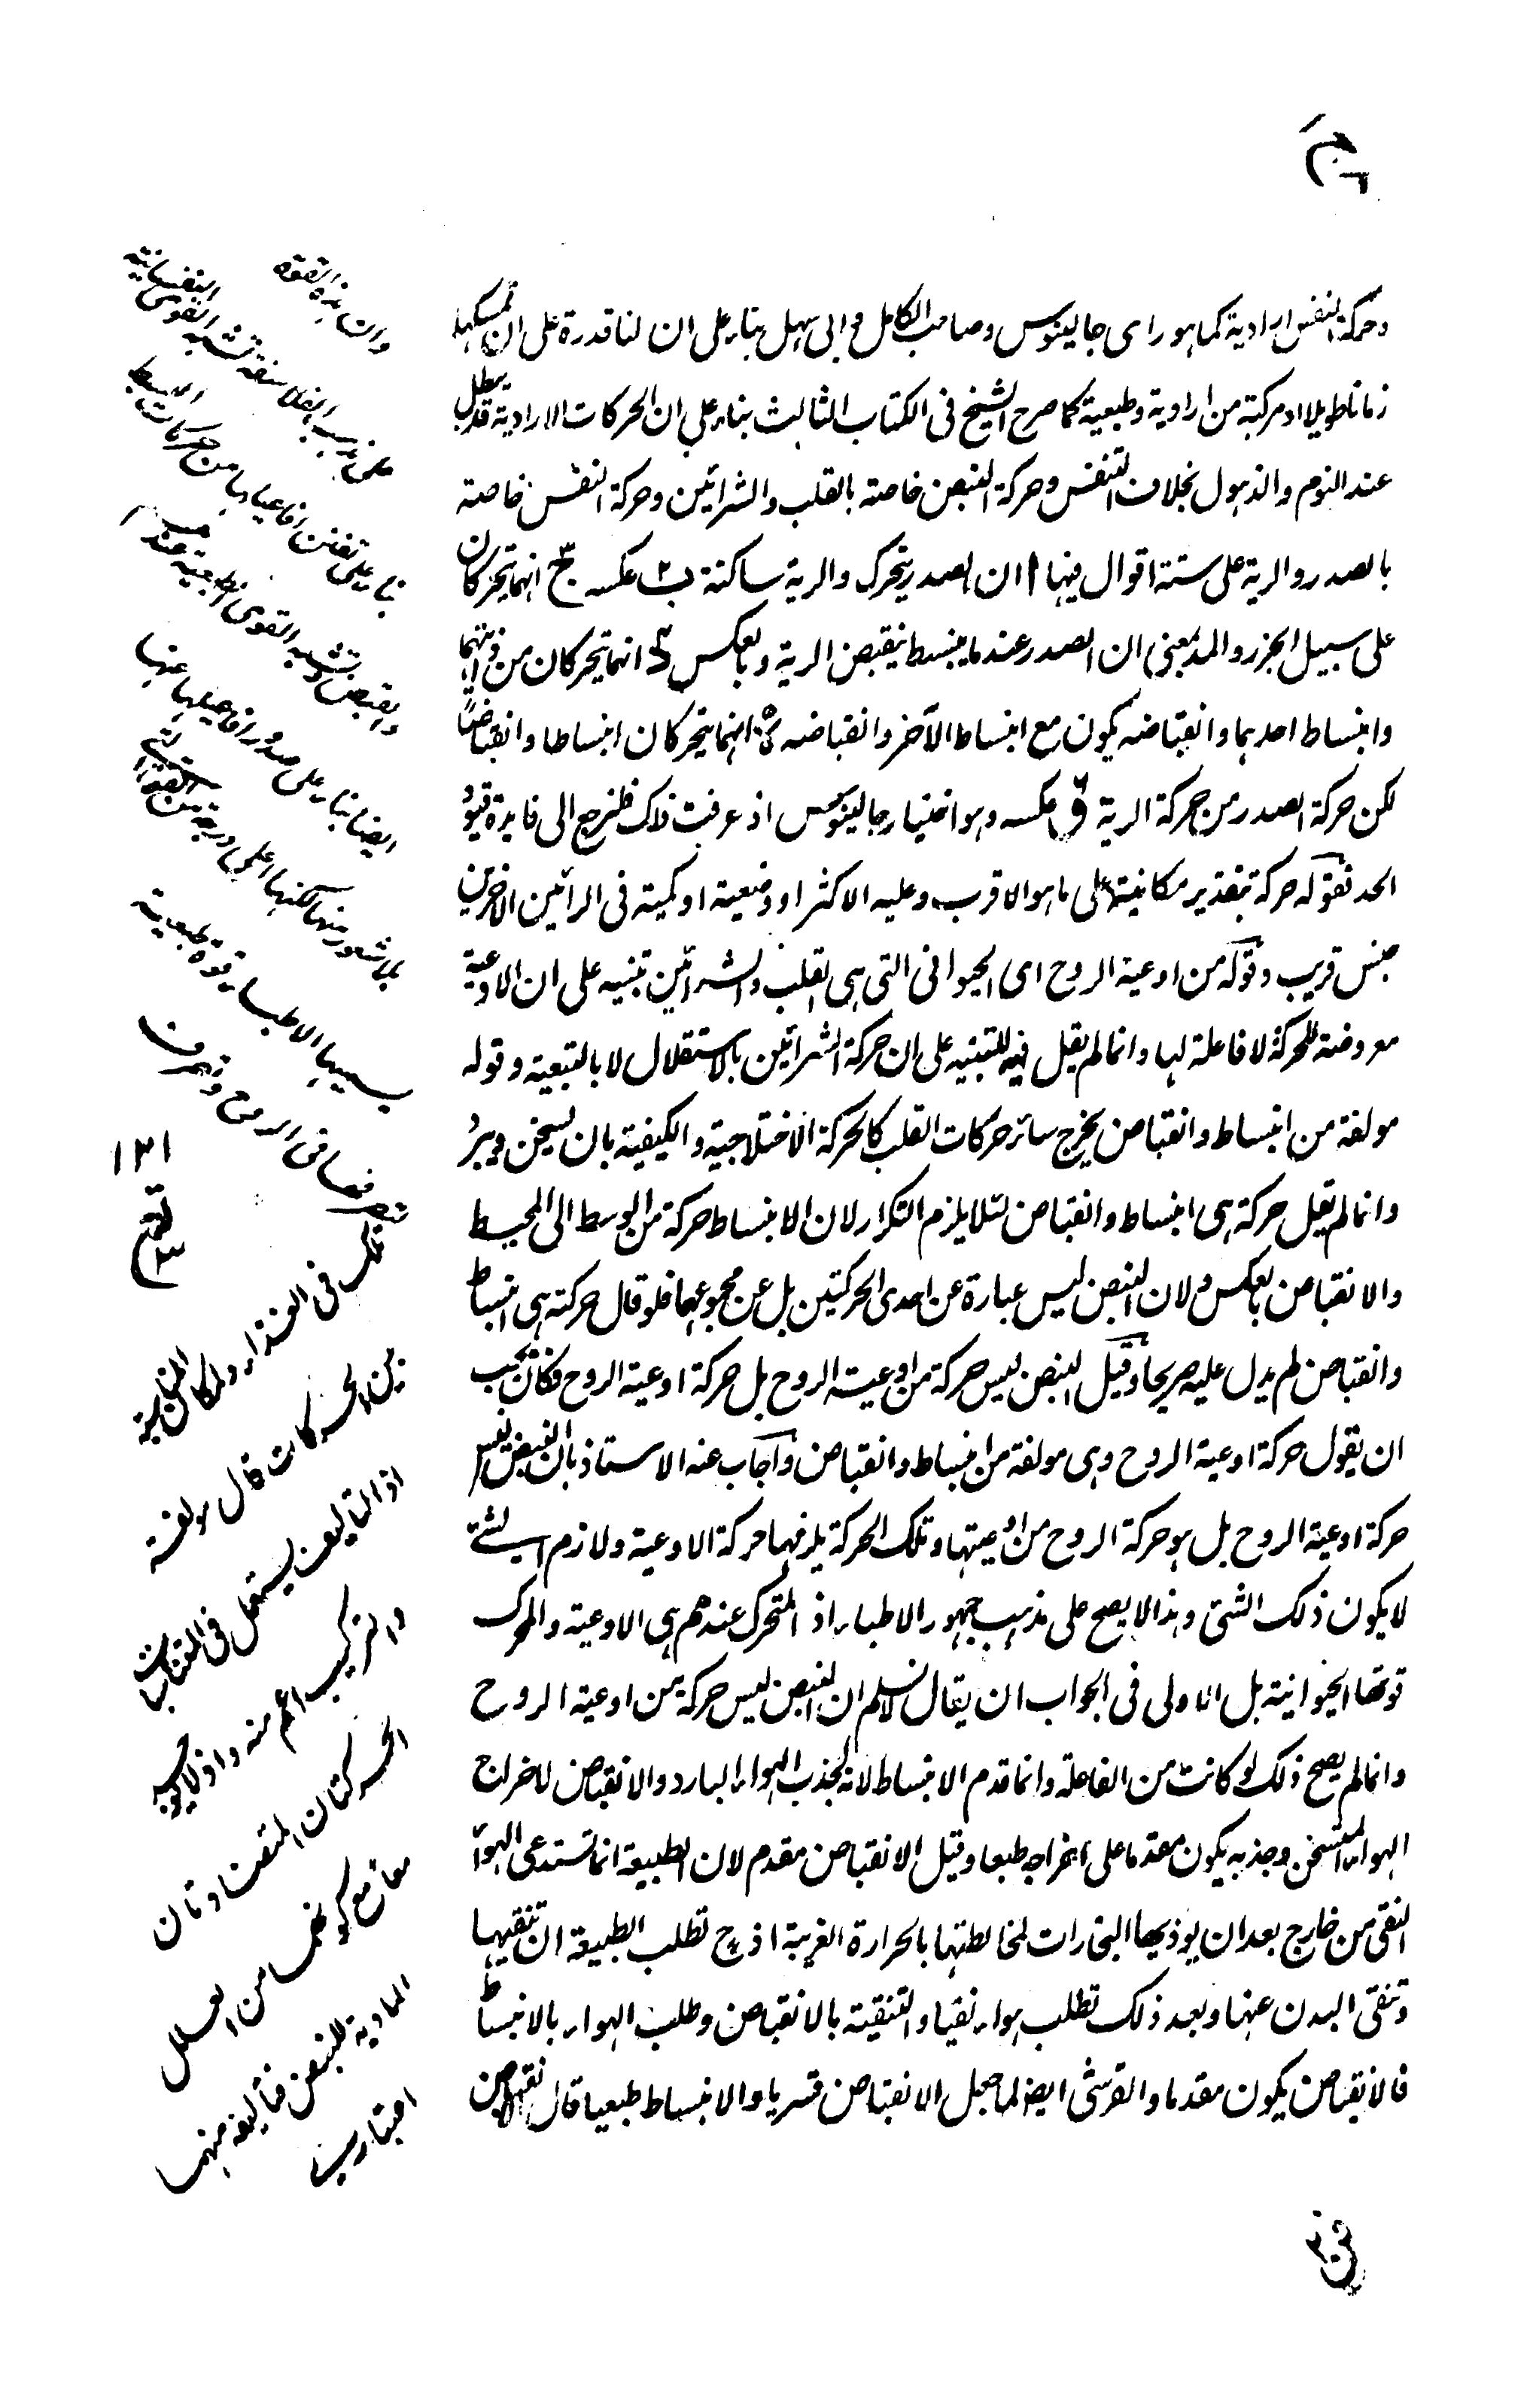 وحركة النفس ارادية كما هو رای جالینوس وصاحب الكامل وابی سهل بناء علی ان لنا قدرة علی ان نمسكها
زمانا طویلا او مركبة من ارادیة وطبعیة كما صرح الشیخ فی الكتاب الثالث بناء علی ان الحركات الارادیة قد یبطل
عند النوم والذهول بخلاف التنفس وحركة النبض خاصة بالقلب والشرائین وحركة النفس خاصة
بالصدر والریة علی ستة اقوال فیها ١ ان الصدر یتحرك والریة ساكنة ب٢ عكسه ج٣ انهما یتحركان
علی سبیل الجزر والمد بمعنی ان الصدر عند ما ینبسط ینقبض الریة وبالعكس د٤ انهما یتحركان من ذاتهما
وانبساط احدهما وانقباضه یكون مع انبساط الآخر وانقباضه ه٥ انهما یتحركان انبساطا وانقباضا
لكن حركة الصدر من حركة الریة و٦ عكسه وهو اختیار جالینوس اذ عرفت ذلك فلنرجع الی فایدة قیود
الحد فقوله حركة بتقدیر مكانیة علی ما هو الاقرب وعلیه الاكثر او وضعیة او كمیة فی الرائین الاخرین
جنس قریب وقوله من اوعیة الروح ای الحیوانی التی هی القلب والشرائین تنبیه علی ان الاوعیة
معروضة للحركة لا فاعلة لها وانما لم یقل فیه للتنبیه علی ان حركة الشرائین بالاستقلال لا بالتبعیة وقوله
مولفة من انبساط وانقباض یخرج سائر حركات القلب كالحركة الاختلاجیة والكیفیة بان یسخن ویبرد
وانما لم یقل حركة هی انبساط وانقباض لئلا یلزم التكرار لان الانبساط حركة من الوسط الی المحیط
والانقباض بالعكس ولان النبض لیس عبارة عن احدی الحركتین بل عن مجموعهما فلو قال حركة هی انبساط
وانقباض لم یدل علیه صریحا وقیل النبض لیس حركة من اوعیة الروح بل حركة اوعیة الروح فكان یجب
ان یقول حركة اوعیة الروح وهی مولفة من انبساط وانقباض واجاب عنه الاستاذ بان النبض لیس
حركة اوعیة الروح بل هو حركة الروح من اوعیتها وتلك الحركة یلزمها حركة الاوعیة ولازم الشئ
لا یكون ذلك الشئ وهذا لا یصح علی مذهب جمهور الاطباء اذ المتحرك عندهم هی الاوعیة والمحرك
قوتها الحیوانیة بل الاولی فی الجواب ان یقال لا نسلم ان النبض لیس حركة من اوعیة الروح
وانما لم یصح ذلك لو كانت من الفاعلة وانما قدم الانبساط لانه لجذب الهواء البارد والانقباض لاخراج
الهواء المتسخن وجذبه یكون مقدما علی اخراجه طبعا وقیل الانقباض مقدم لان الطبیعة انما تستدعی الهواء
النقی من خارج بعد ان یوذیها البخارات لمخالطتها بالحرارة الغریبة اذ ح تطلب الطبیعة ان تنقیها
وتنقی البدن عنها وبعد ذلك تطلب هواء نقیا والتنقیة بالانقباض وطلب الهواء بالانبساط
فالانقباض یكون مقدما والقرشی ایضا لما جعل الانقباض قسریا والانبساط طبعیا قال
وان هذه القوة
علی مذهب الفلاسفة تشبه القوی النفسانیة
بناء علی تفنن افاعیلها من حركات البسط
والقبض وتشبه القوی الطبیعیة عندهم
ایضا بناء علی صدور افاعیلها عنها
بلا شعور منها لكنها اعلی درجة من القوة التی
یسمیها الاطباء قوة طبعیة
فی الروح وتصرف
تلك فی الغذاء ولمكان المناسبة
بین الحركات قال مولفة
اذ التالیف یستعمل فی المتناسبات
والتركیب اعم منه واذ لا یوجد
الحركتان المتضادتان
معا مع كونهما من العلل
المادیة للنبض فتالیفه منهما
١٢١